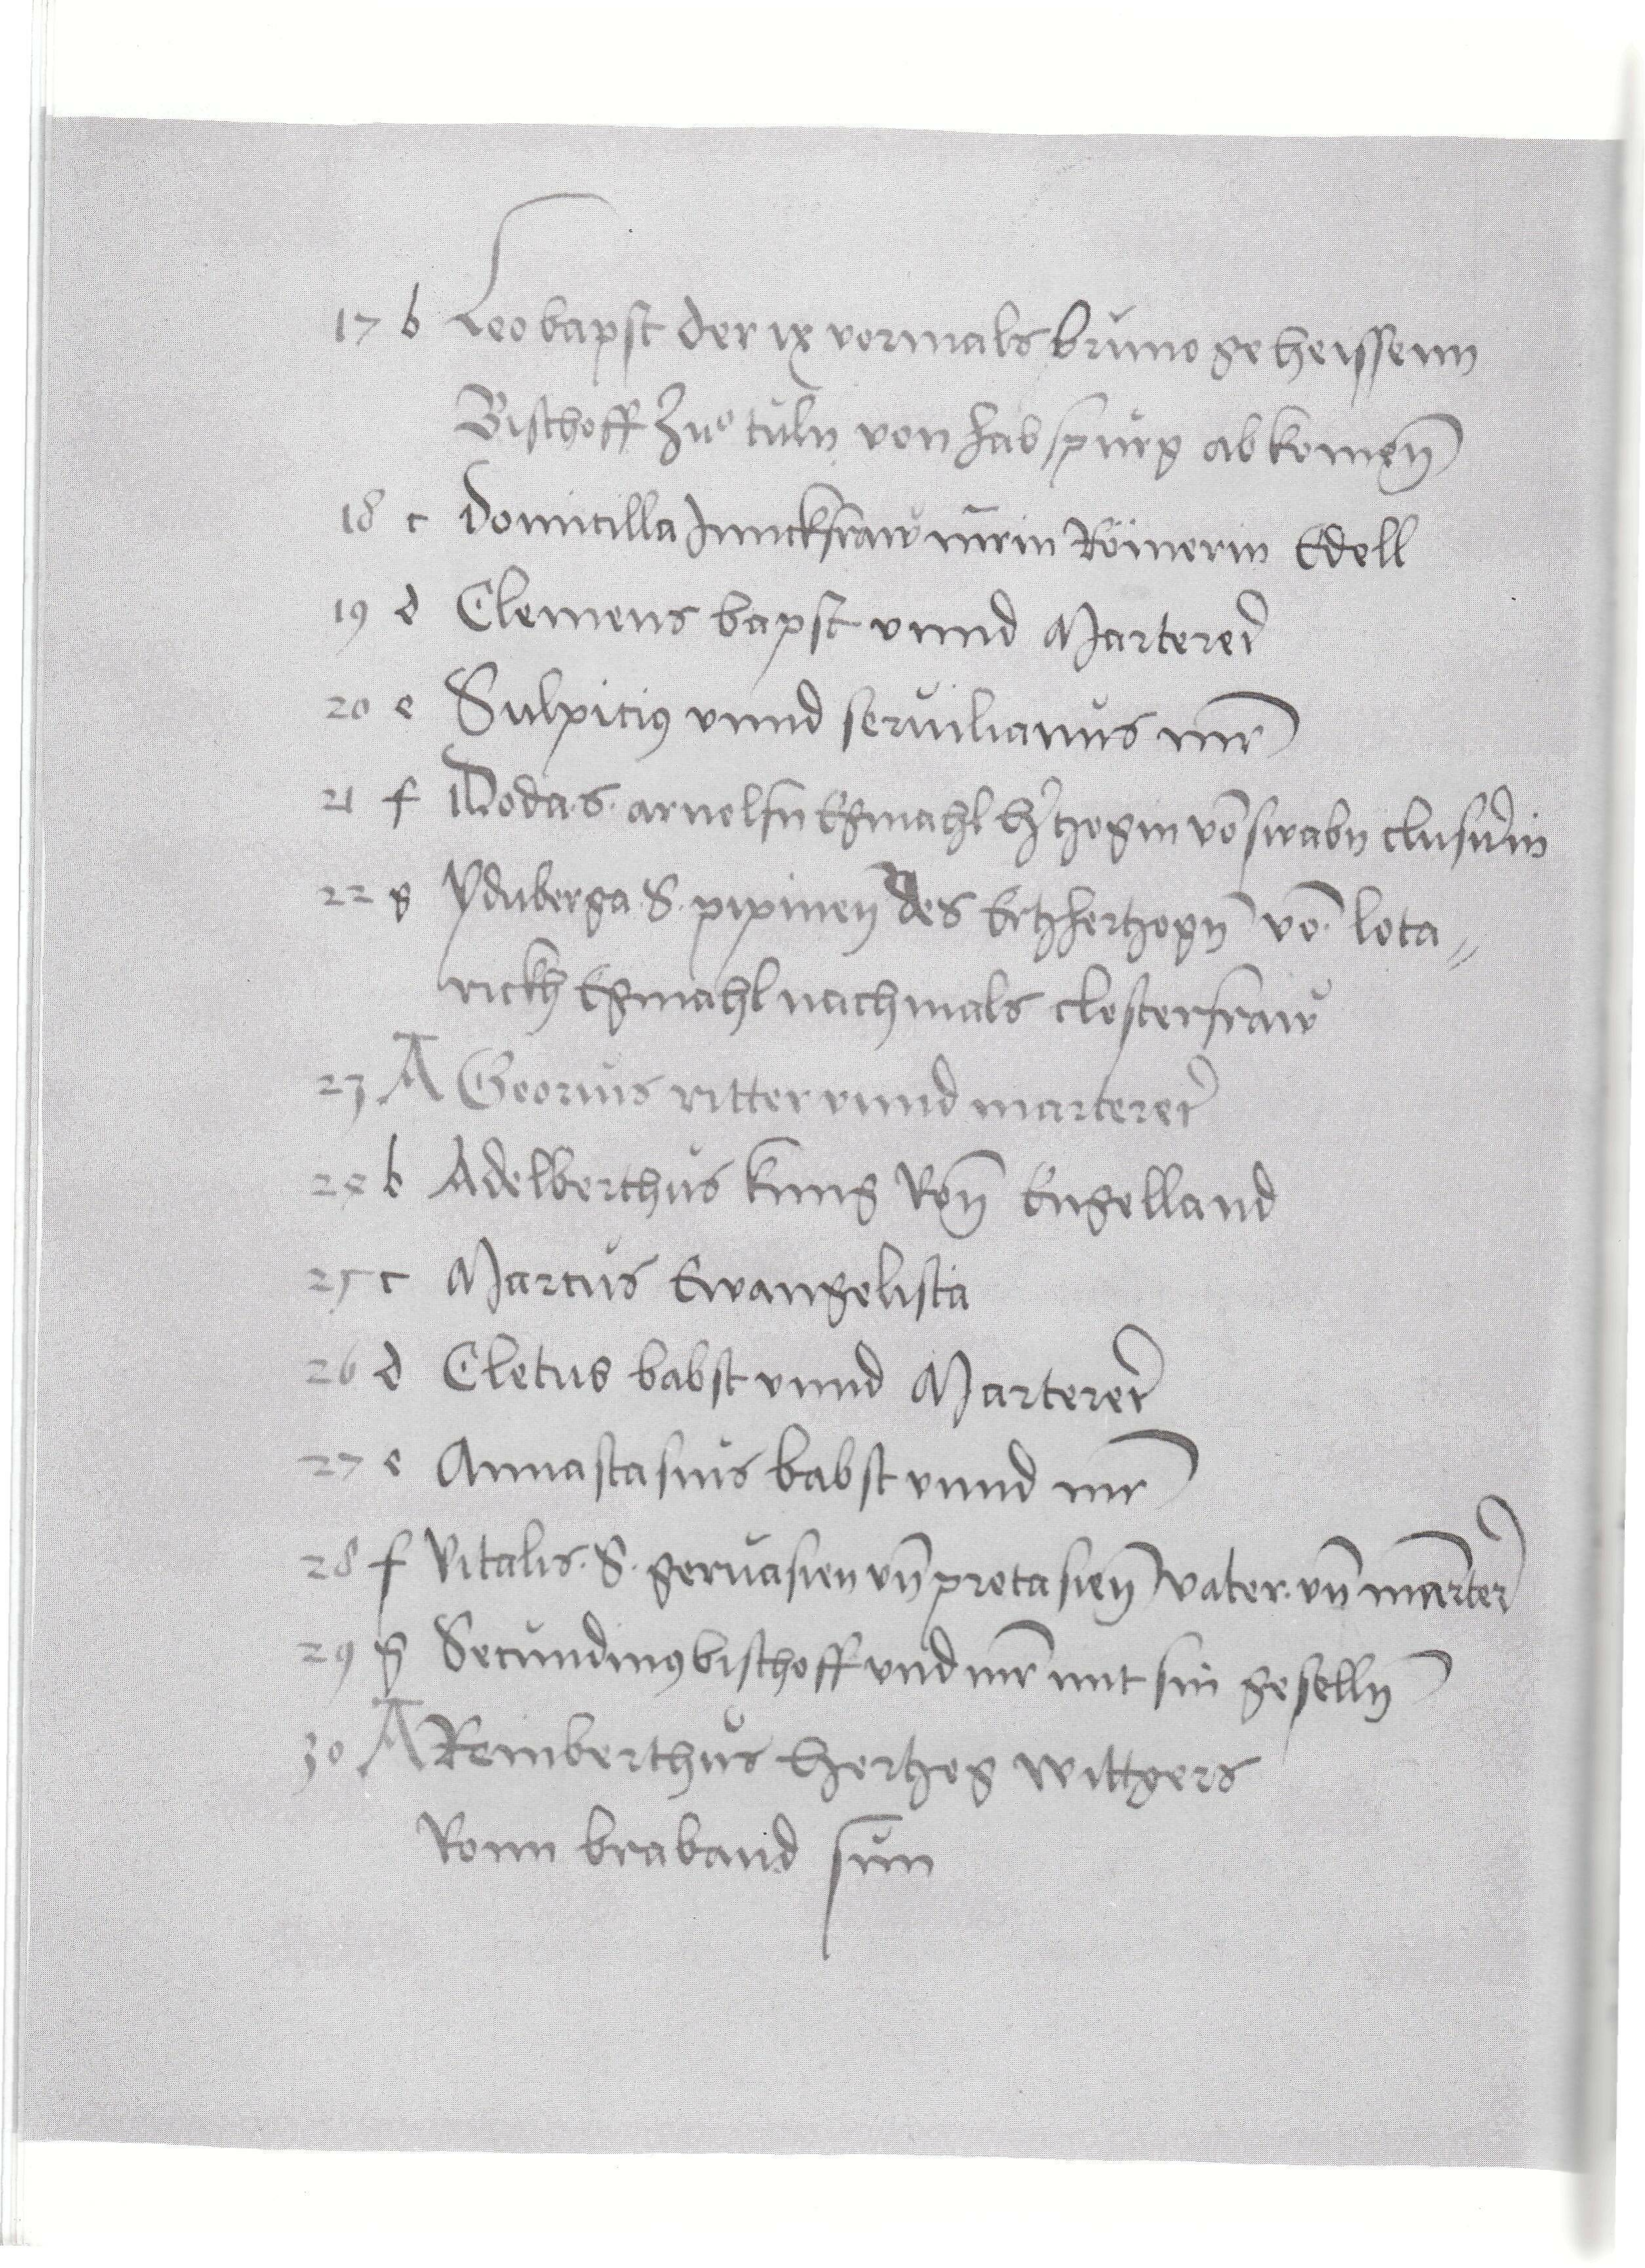 17 b Leo bapst der ix vormals bruno geheissenn
Bischoff Zuͦ tuln von habspurg abkomen̄
18 c Domicilla Junckfraw mr̄in Römerin Edell
19 d Clemens bapst vnnd Marterer
20 e Sulpicius vnnd seruilianus mr̄
21 f Doda .s. arnolfn Egmahl htzogin vō swabn clusnerin
22 g Yduberga .S. pipinen des Ertzhertzogn̄ vō lota„
rickh Egmahl nachmals closterfraw
23 A Georius ritter vnnd marterer
24 b Adelberthus kung Von̄ Engelland
25 c Marcus Ewangelista
26 d Cletus babst vnnd Marterer
27 e Annastasius babst vnnd mr̄
28 f Vitalis .S. geruasien vn̄ protasien̄ vater vn̄ marter
29 g Secundinus bischoff vnd mr̄ mit sin geselln̄
30 A Reinberthus Hertzog wittgers
Vonn braband sun